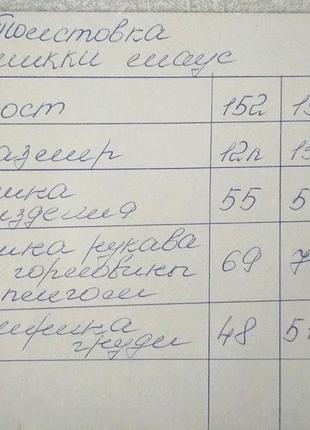 Толстовка
микки маус
ост 152 1
азмер 12л 1
ина
изделия 55 5
ина рукава
горловины 69 7
пнгом
ирина
груди 48 5